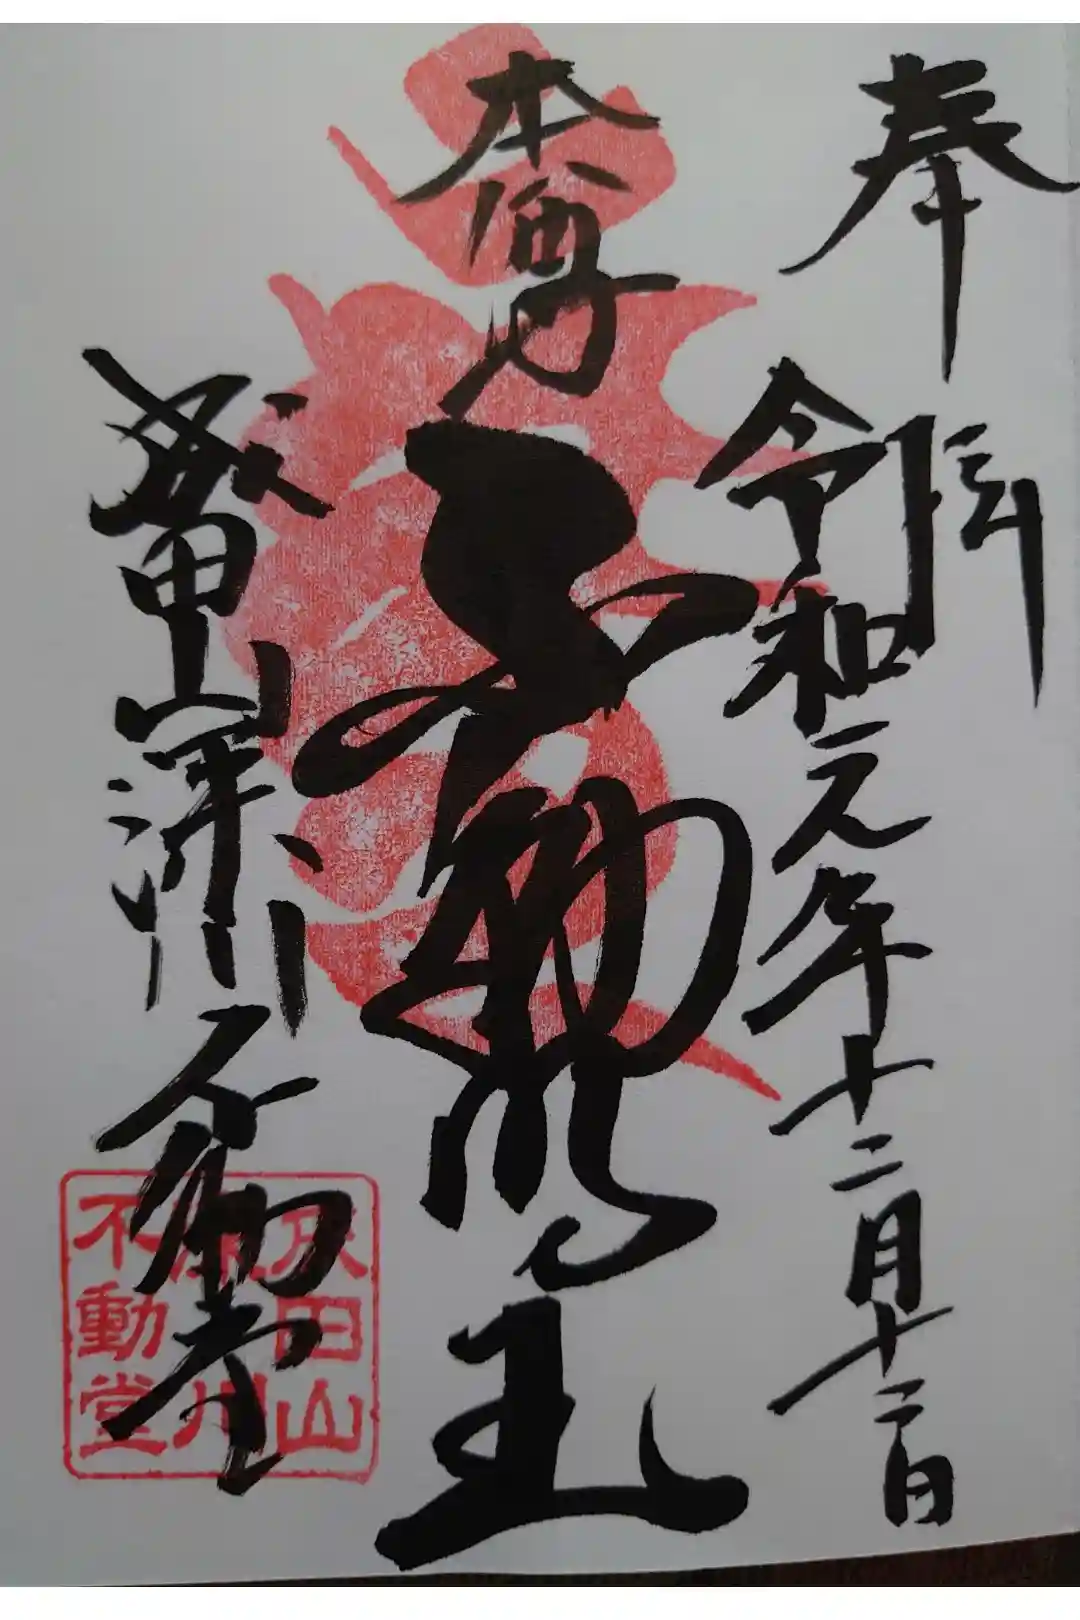 奉拝
令和元年十二月十二日
本尊
不動明王
成田山深川不動堂
成田山
深川
不動堂